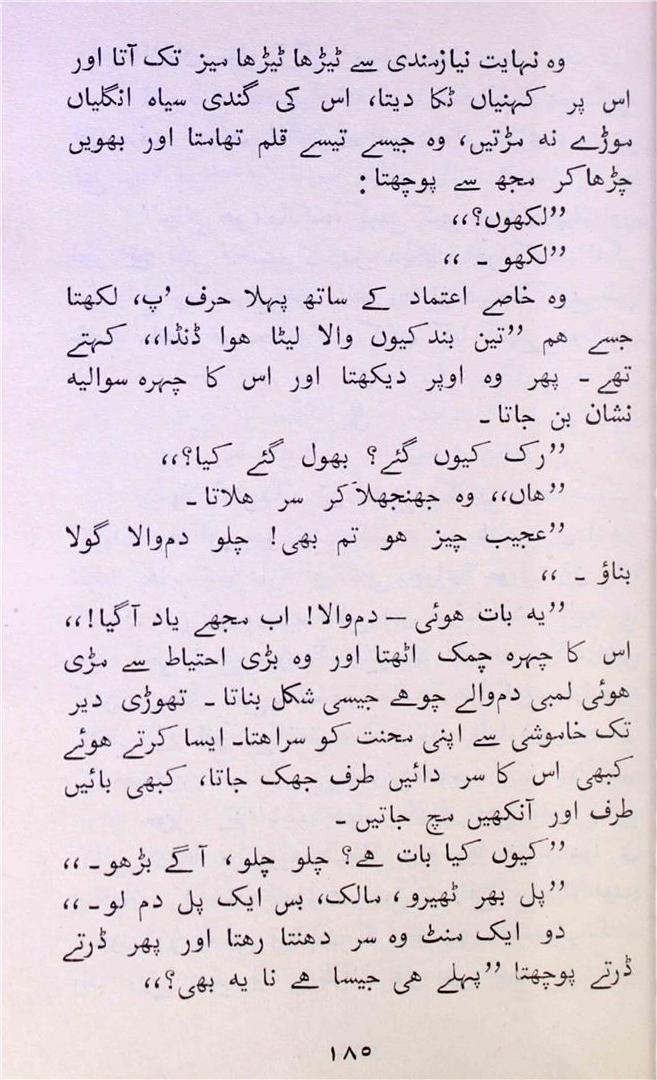 وہ نہایت نیازمندی سے ٹیڑھا ٹیڑھا میز تک آتا اور
اس پر کہنیاں ٹکا دیتا، اس کی گندی سیاہ انگلیاں
موڑے نہ مڑتیں، وہ جیسے تیسے قلم تھامتا اور بھویں
چڑھاکر مجھ سے پوچھتا:
”لکھوں؟،،
”لکھو ۔ ،،
وہ خاصے اعتماد کے ساتھ پہلا حرف ’پ، لکھتا
جسے ھم ”تین بندکیوں والا لیٹا ھوا ڈنڈا،، کہتے
تھے۔ پھر وہ اوپر دیکھتا اور اس کا چہرہ سوالیہ
نشان بن جاتا۔
”رک کیوں گئے؟ بھول گئے کیا؟،،
”ھاں،، وہ جھنجھلاکر سر ھلاتا۔
”عجیب چیز ھو تم بھی! چلو دموالا گولا
بناؤ ۔ ،،
”یہ بات ھوئی — دموالا! اب مجھے یاد آگیا!،،
اس کا چہرہ چمک اٹھتا اور وہ بڑی احتیاط سے مڑی
ھوئی لمبی دموالے چوھے جیسی شکل بناتا۔ تھوڑی دیر
تک خاموشی سے اپنی محنت کو سراھتا۔ ایسا کرتے ھوئے
کبھی اس کا سر دائیں طرف جھک جاتا، کبھی بائیں
طرف اور آنکھیں مچ جاتیں۔
”کیوں کیا بات ھے؟ چلو چلو، آگے بڑھو۔،،
”پل بھر ٹھیرو، مالک، بس ایک پل دم لو۔،،
دو ایک منٹ وہ سر دھنتا رھتا اور پھر ڈرتے
ڈرتے پوچھتا ”پہلے ھی جیسا ھے نا یہ بھی؟،،
۱۸۵